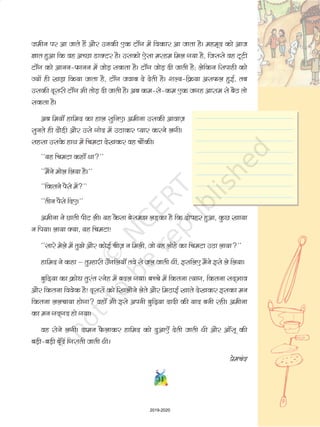 ज़मीन पर आ जाते हैं और उनकी एक टाँग में विकार आ जाता है। महमूद को आज
ज्ञात हुआ कि वह अच्छा डाक्टर है। उसको ऐसा मरहम मिल गया है, जिससे वह टूटी
टाँग को आनन-फानन में जोड़ सकता है। टाँग जोड़ दी जाती है, लेकिन सिपाही को
ज्यों ही खड़ा किया जाता है, टाँग जवाब दे देती है। शल्य-क्रिया असफल हुई, तब
उसकी दूसरी टाँग भी तोड़ दी जाती है। अब कम-से-कम एक जगह आराम से बैठ तो
सकता है।
अब मियाँ हामिद का हाल सुनिए। अमीना उसकी आवाज़
सुनते ही दौड़ी और उसे गोद में उठाकर प्यार करने लगी।
सहसा उसके हाथ में चिमटा देखकर वह चौंकी।
“यह चिमटा कहाँ था?”
“मैंने मोल लिया है।”
“कितने पैसे में?”
“तीन पैसे दिए।”
अमीना ने छाती पीट ली। यह कैसा बेसमझ लड़का है कि दोपहर हुआ, कुछ खाया
न पिया। लाया क्या, यह चिमटा!
“सारे मेले में तुझे और कोई चीज़ न मिली, जो यह लोहे का चिमटा उठा लाया?”
हामिद ने कहा – तुम्हारी उँगलियाँ तवे से जल जाती थीं, इसलिए मैंने इसे ले लिया।
बुढ़िया का क्रोध तुरंत स्नेह में बदल गया। बच्चे में कितना त्याग, कितना सद्भाव
और कितना विवेक है! दूसरों को खिलौने लेते और मिठाई खाते देखकर इसका मन
कितना ललचाया होगा? वहाँ भी इसे अपनी बुढ़िया दादी की याद बनी रही। अमीना
का मन गद्गद हो गया।
वह रोने लगी। दामन फैलाकर हामिद को दुआएँ देती जाती थी और आँसू की
बड़ी-बड़ी बूँदें गिराती जाती थी।
प्रेमचंद
© NCERT
not to be republished
2019-2020